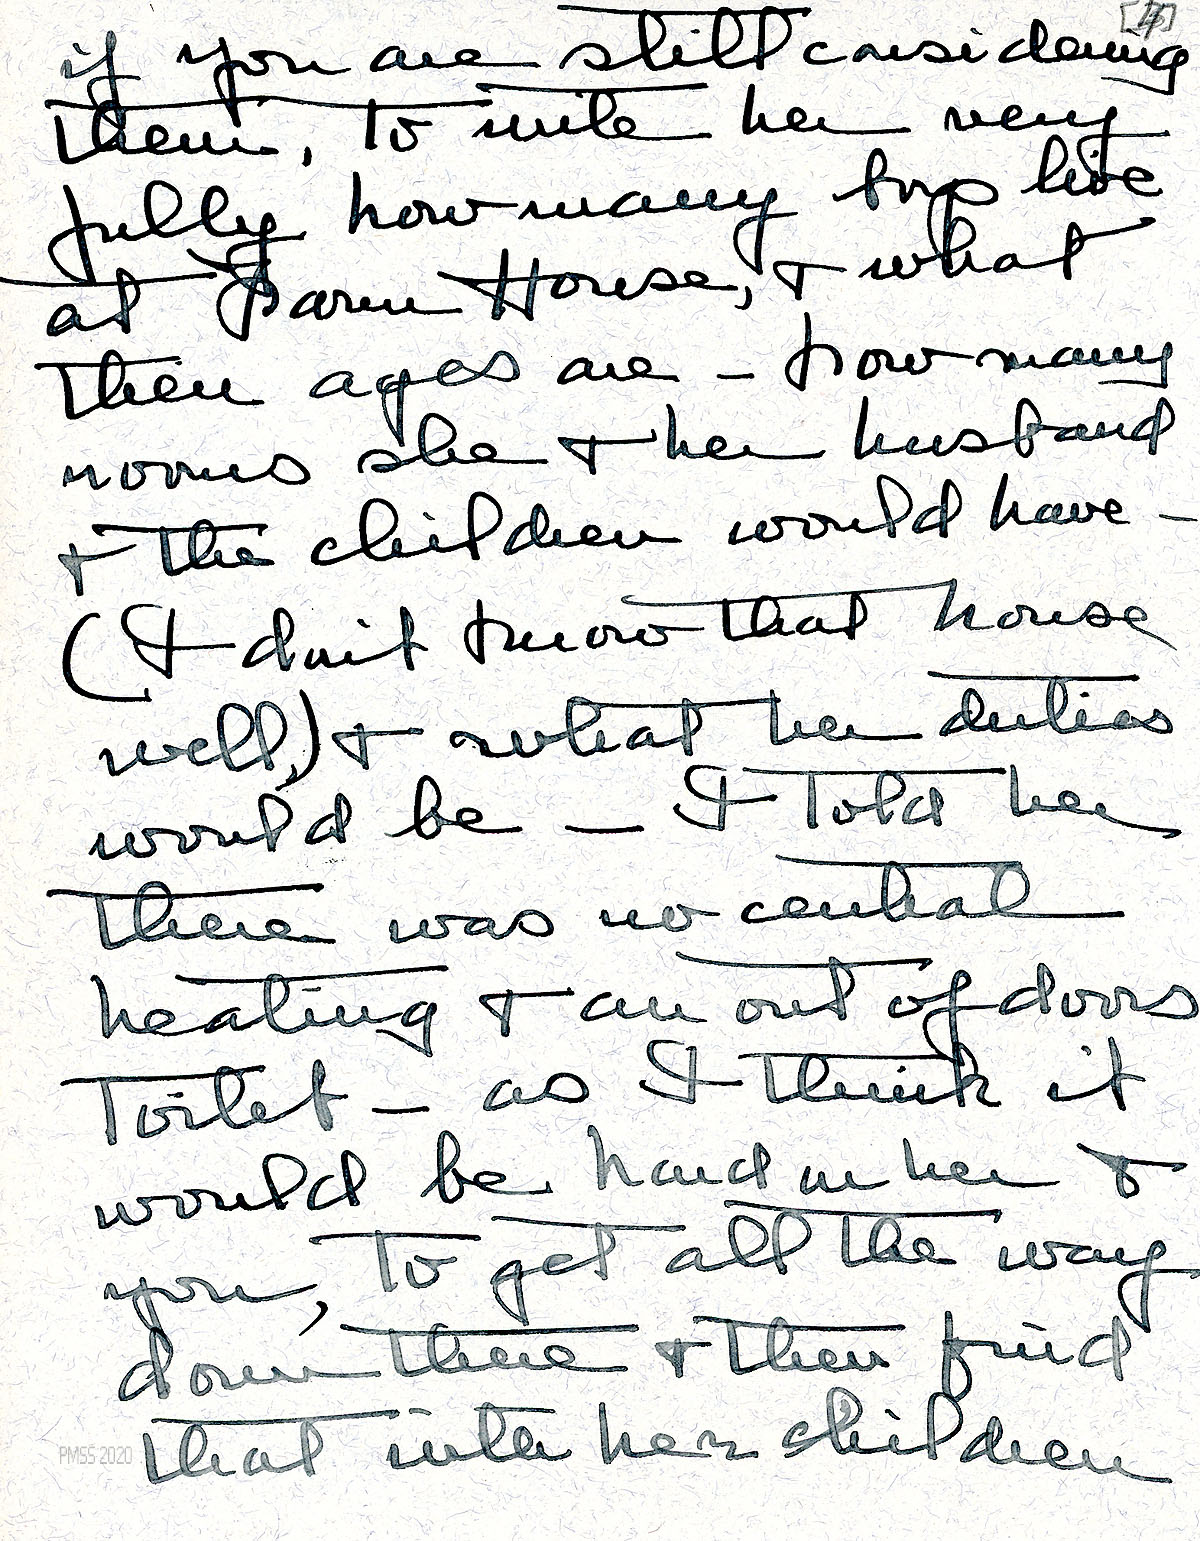 [4]
if you are still considering
them, to write her very
fully how many boys live
at Farm House, & what
their ages are – how many
rooms she & her husband
& the children would have –
(I don't know that house
well,) & what her duties
would be – I told her
there was no central
heating & an out of doors
toilet – as I think it
would be hard on her &
you, to get all the way
down there & then find
that with her children
PMSS 2020